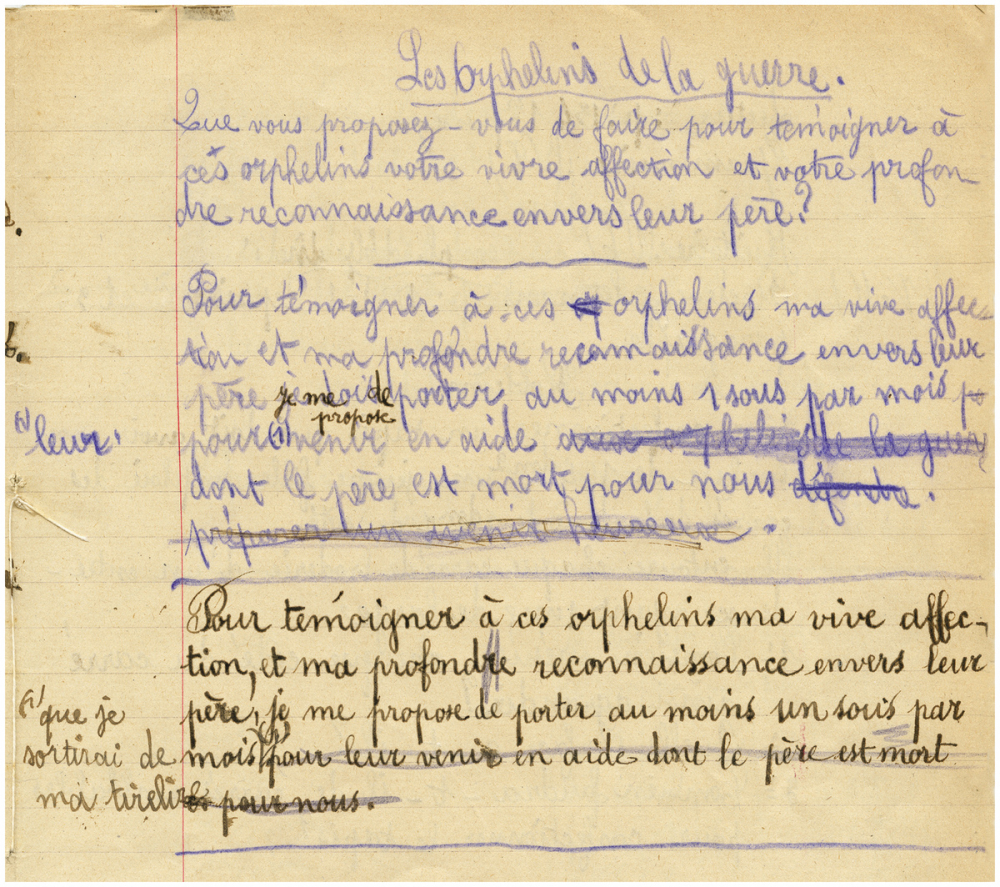 Les Orphelins de la guerre.
Que vous proposez-vous de faire pour temoigner à
ces orphelins votre vivre affection et votre profon-
dre reconnaissance envers leur père?
Pour témoigner à ces orphelins ma vive affec-
tion et ma profondre reconnaissance envers leur
père je dois porter au moins 1 sous par mois po
je me de
propose
(1) leur
pour (1) venir en aide aux orphelins de la guerre
dont le père est mort pour nous défendre.
préparer un avenir heureux.
Pour temoigner à ces orphelins ma vive affec-
tion, et ma profondre reconnaissance envers leur
père, je me propose de porter au moins un sous par
mois (1) pour leur venir en aide dont le père est mort
pour nous.
(1) que je
sortirai de
ma tirelire